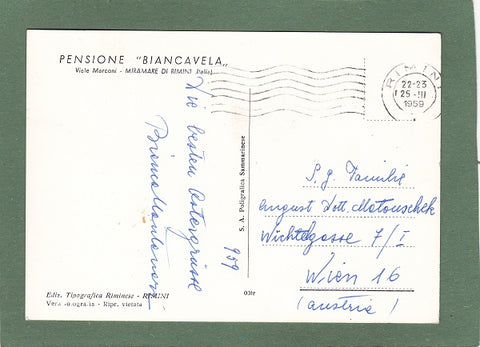 PENSIONE "BIANCAVELA„
Viale Marconi - MIRAMARE DI RIMINI (Italia)
RIMINI
22-23
25-III
1959
Die besten Ostergrüsse
959
S. A. Poligrafica Sammarinese
S. g. Familie
August Matouschek
Wichtelgasse 7/I
Wien 16
(Austria)
Ediz. Tipografica Riminese - RIMINI
Vera fotografia - Ripr. vietata